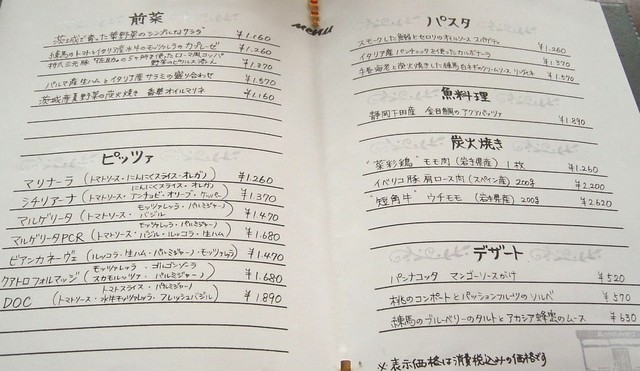 前菜
茨城で育った葉野菜のシンプルなサラダ ¥1.160
練馬のトマトとイタリア産水牛のモッツァレラのカプレーゼ ¥1.260
村バ三元豚 を使ったローマ風コッパ
野菜のピクルス添え ¥1.370
パルマ産生ハムとイタリア産サラミの盛り合わせ ¥1.570
茨城産夏野菜の炭火焼き 香草オイルマリネ ¥1.160
ピッツァ
マリナーラ (トマトソース・にんにくスライス・オレガノ) ¥1.260
シチリアーナ (にんにくスライス・オレガノ
トマトソース・アンチョビ・オリーブ・ケッパー) ¥1.370
マルゲリータ (モッツァレッラ・パルミジャーノ
トマトソース・バジル) ¥1.470
マルゲリータPCR (モッツァレッラ・パルミジャーノ
トマトソース・バジル・ルッコラ・生ハム) ¥1.680
ビアンカネーヴェ (ルッコラ・生ハム・パルミジャーノ・モッツァレッラ) ¥1.470
クアトロフォルマッジ (モッツァレッラ・ゴルゴンゾーラ
スカモルッツァ・パルミジャーノ) ¥1.680
DOC (トマトスライス・パルミジャーノ
トマトソース・水牛モッツァレッラ・フレッシュバジル) ¥1.890
menu
パスタ
スモークした鮎とセロリのオイルソース スパゲティ ¥1.260
イタリア産パンチェッタを使ったカルボナーラ ¥1.370
手長海老と炭火焼きした練馬白ネギのクリームソース リングイネ ¥1.570
魚料理
静岡下田産 金目鯛のアクアパッツァ ¥1.890
炭火焼き
"菜彩鶏" モモ肉 (岩手県産) 1枚 ¥1.260
イベリコ豚 肩ロース肉 (スペイン産) 200g ¥2.200
"短角牛" ウチモモ (岩手県産) 200g ¥2.620
デザート
パンナコッタ マンゴーソースがけ ¥520
桃のコンポートとパッションフルーツのソルベ ¥570
練馬のブルーベリーのタルトとアカシア蜂蜜のムース ¥630
※表示価格は消費税込みの価格です